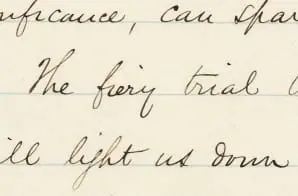 nificance, can spar
The fiery trial t
ill light us down